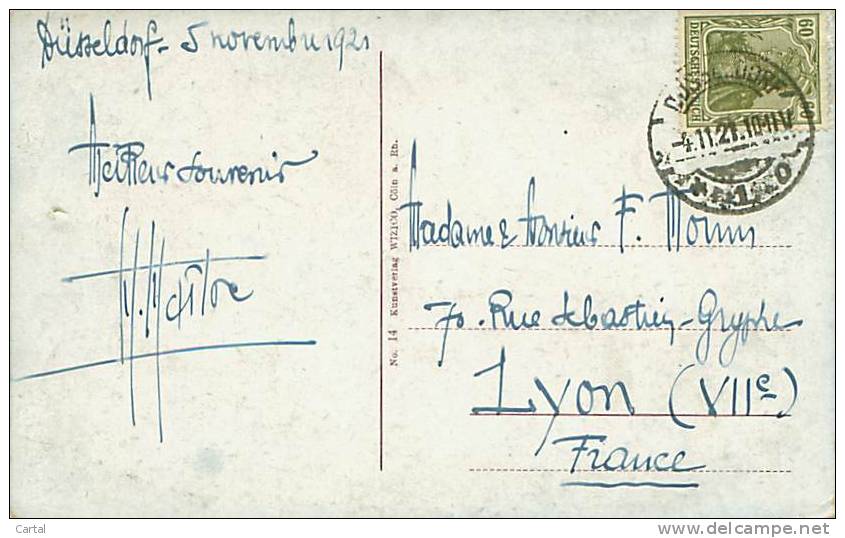 Düsseldorf - 5 novembre 1921
Meilleur Souvenir
No. 14 Kunstverlag WIZICO, Cöln a. Rh.
60 DEUTSCHES REICH 60
DÜSSELDORF
-4.11.21.10-11V
Madame & Monsieur F.
70. Rue Sébastien-Gryphe
Lyon (VIIe)
France
Cartal
www.delcampe.net